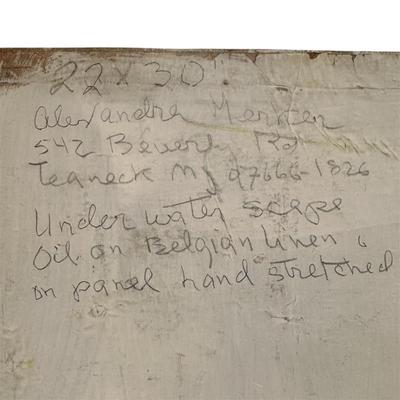 22 x 30"
Alexandra Merker
542 Beverly Rd
Teaneck NJ 07666-1826
Under water scape
Oil on Belgian linen
on panel hand stretched